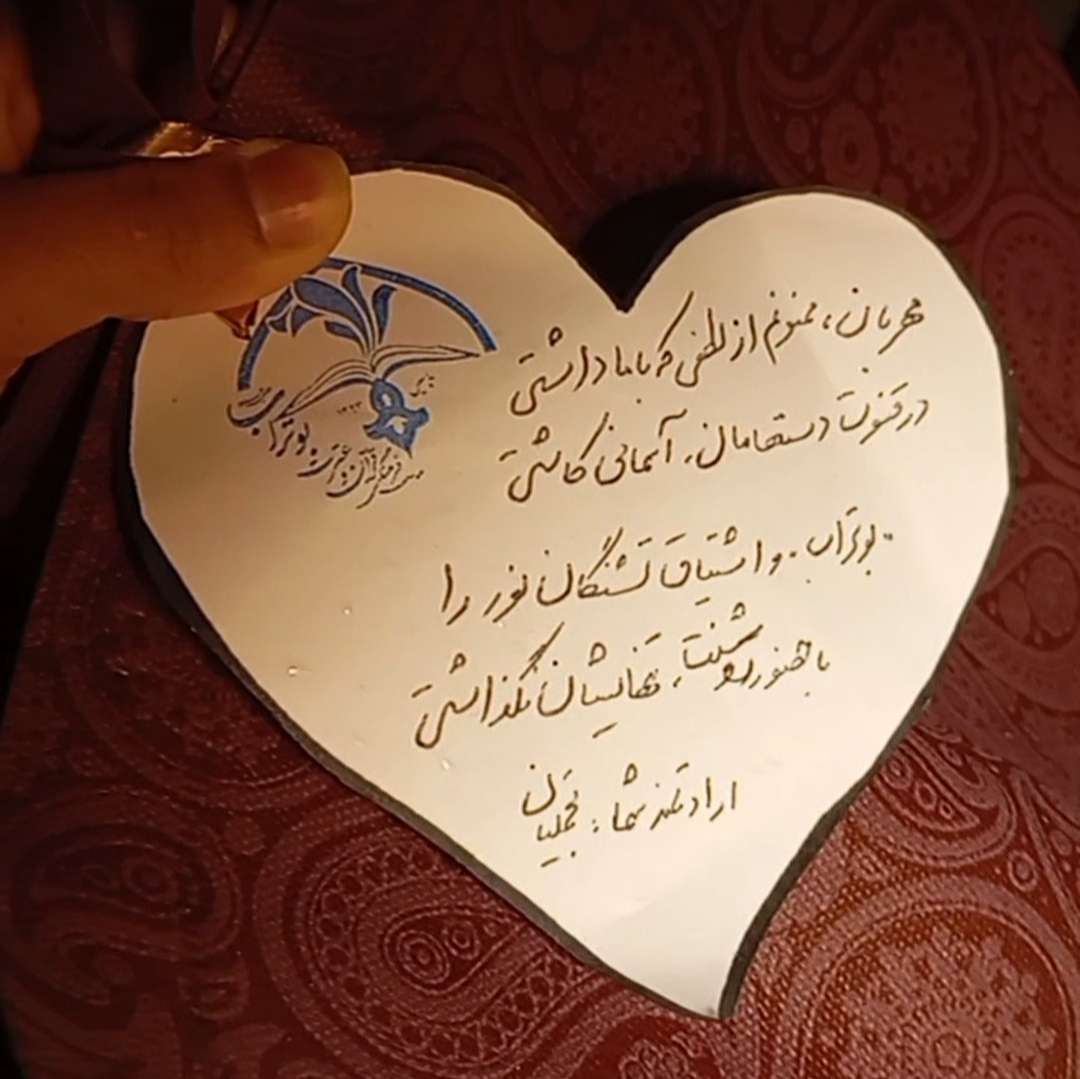 مهربان، ممنونم از لطفی که با ما داشتی
در قنوت دستهامان، آسمانی کاشتی
بوتراب. و اشتیاق تشنگان نور را
با حضور روشنت، تنهایشان نگذاشتی
ارادتمند شما: تجلیان
موسسه فرهنگی قرآن و عترت بوتراب
تاسیس